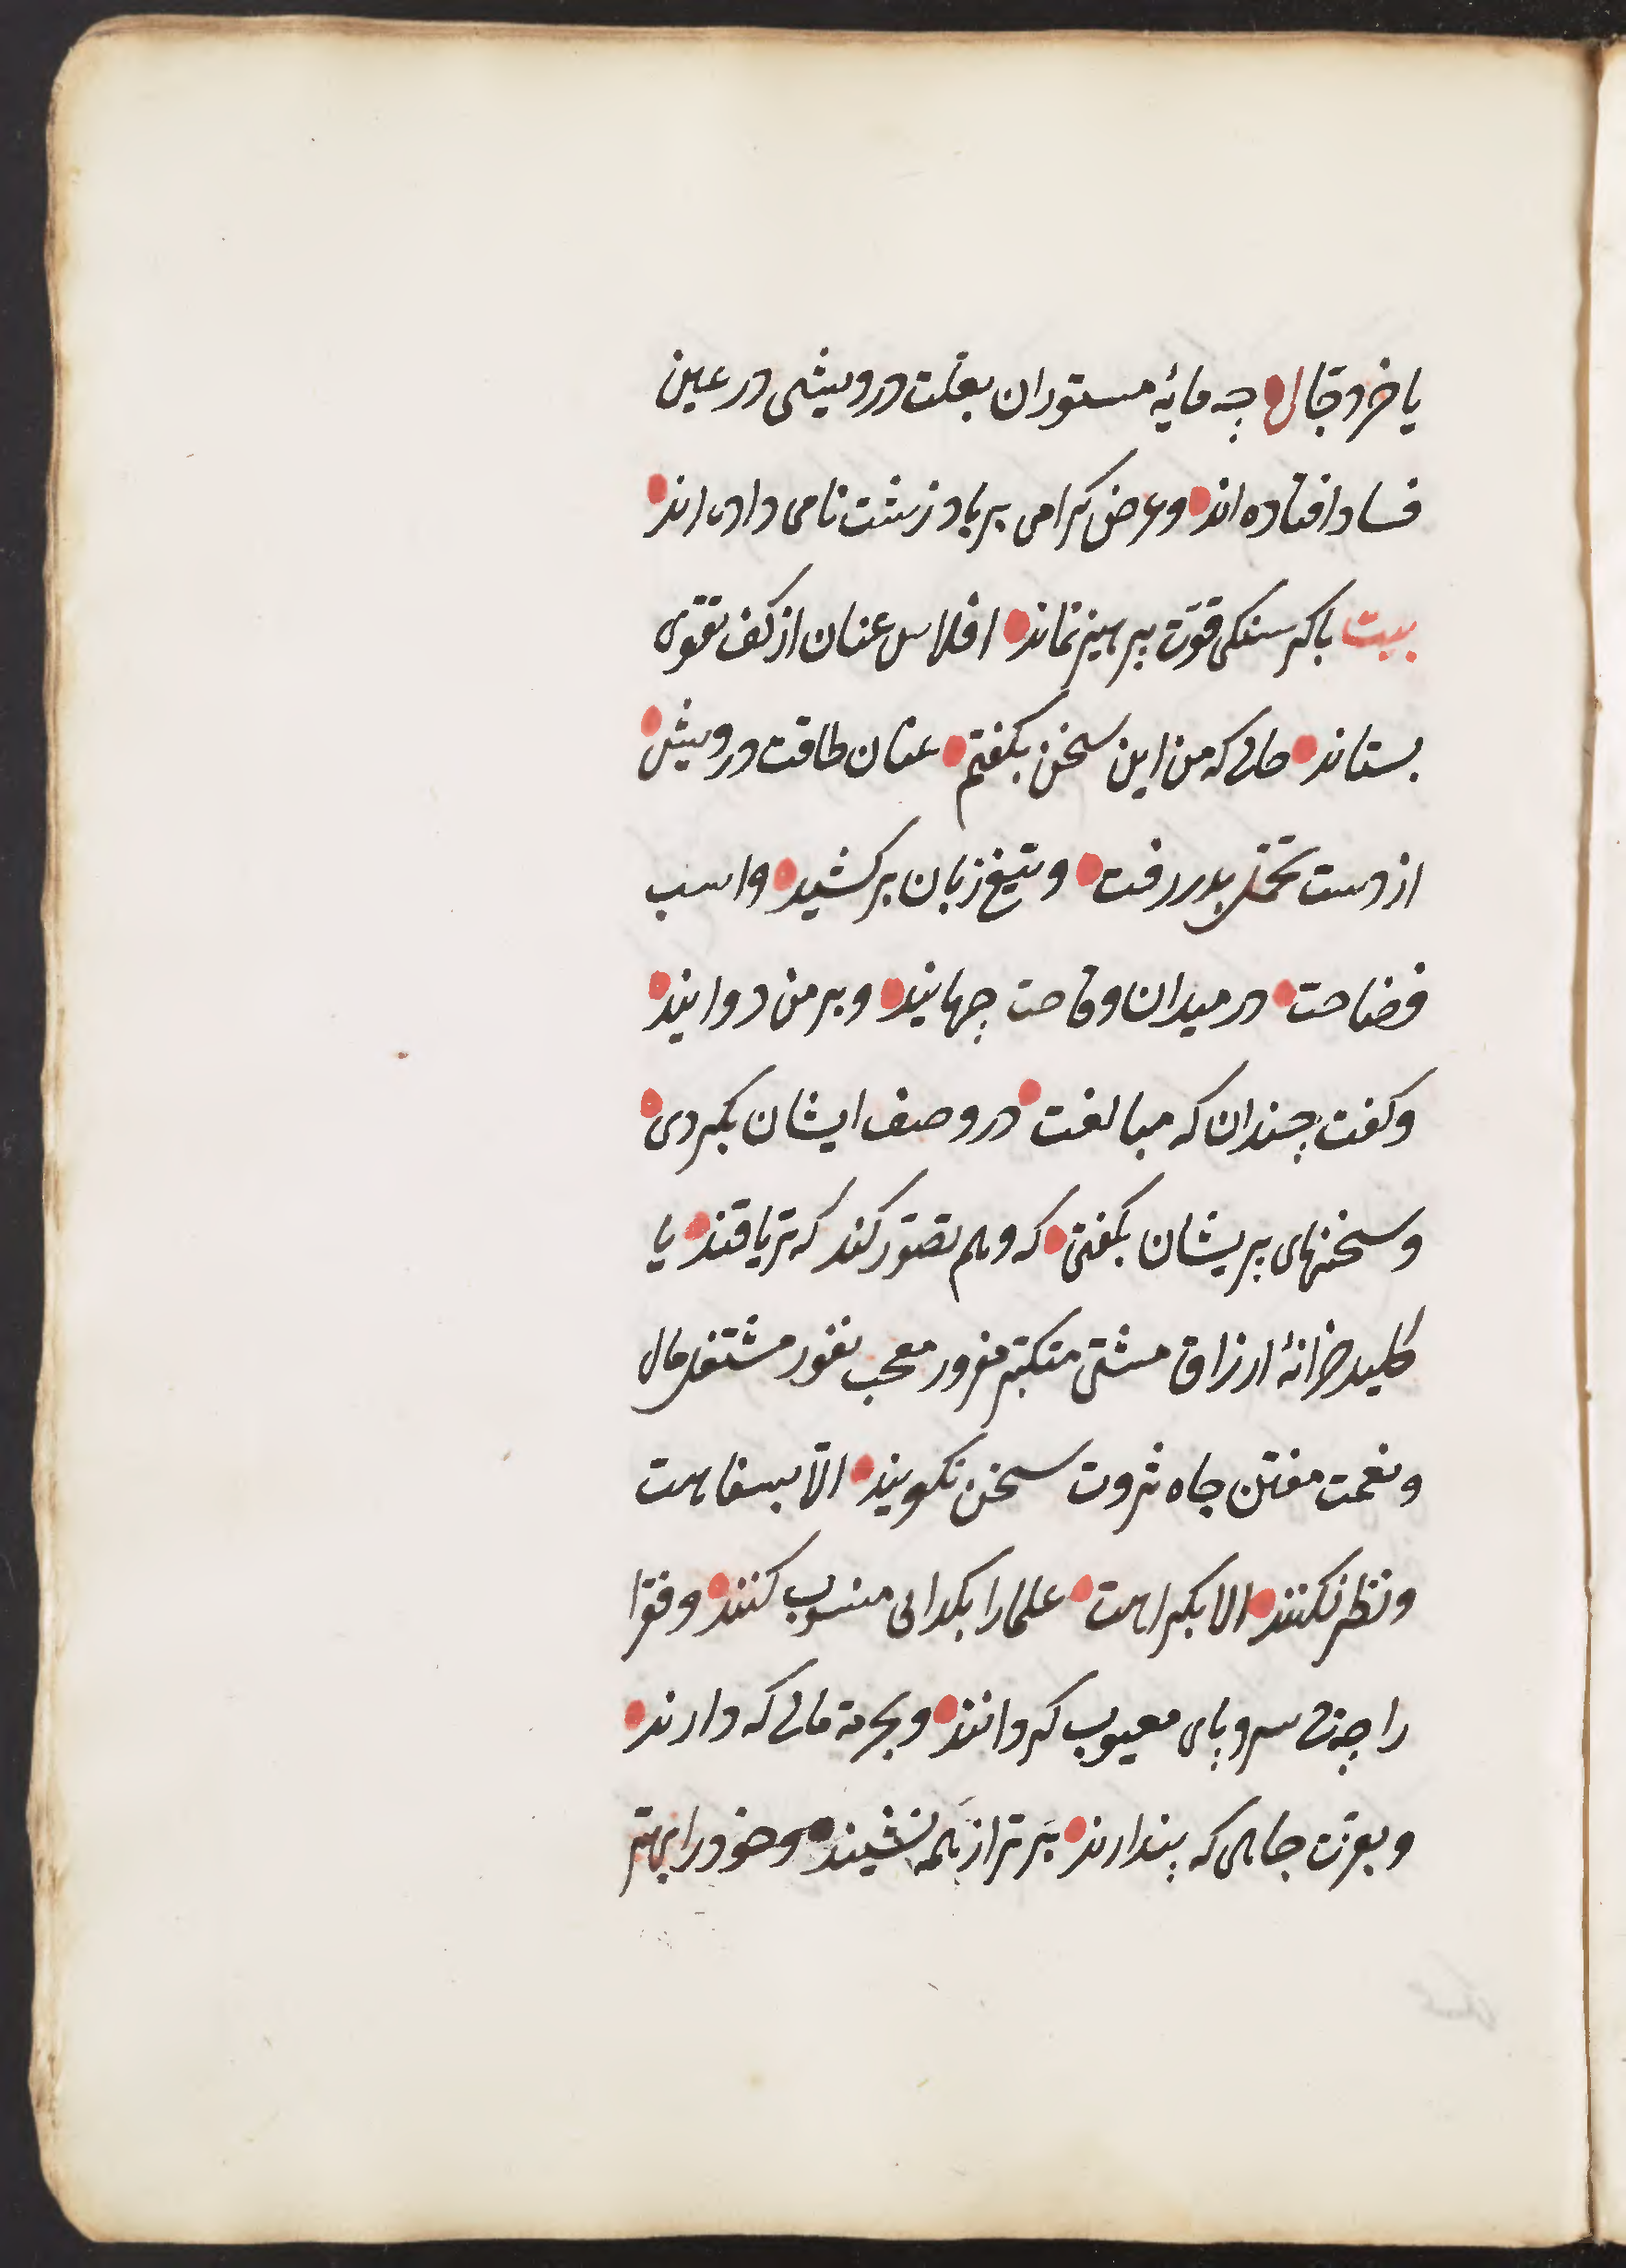 یا خر دجال چه مایهٔ مستوران بعلت درویشی در عین
فساد افتاده اند و عرض کرامی بر باد زشت نامی داده اند
بیت با کرسنکی قوّت پرهیز نماند افلاس عنان از کف تقوی
بستاند حالی که من این سخن بکفتم عنان طاقت درویش
از دست تحمّل بدر رفت و تیغ زبان بر کشید و اسب
فضاحت در میدان وقاحت جهانید و بر من دوانید
و کفت چندان که مبالغت در وصف ایشان بکردی
و سخنهای پریشان بکفتی که وهم تصوّر کند که تریاقند یا
کلید خزانهٔ ارزاق مشتی متکبّر مغرور معجب نفور مشتغل مال
و نعمت مفتتن جاه ثروت سخن نکویند الّا بسفاهت
و نظر نکنند الا بکراهت علما را بکدایی منسوب کنند و فقرا
را چه بی سر و پای معیوب کردانند و بحرمة مالی که دارند
و بعزّت جاهی که پندارند برتر از همه نشیند و خود را بهتر